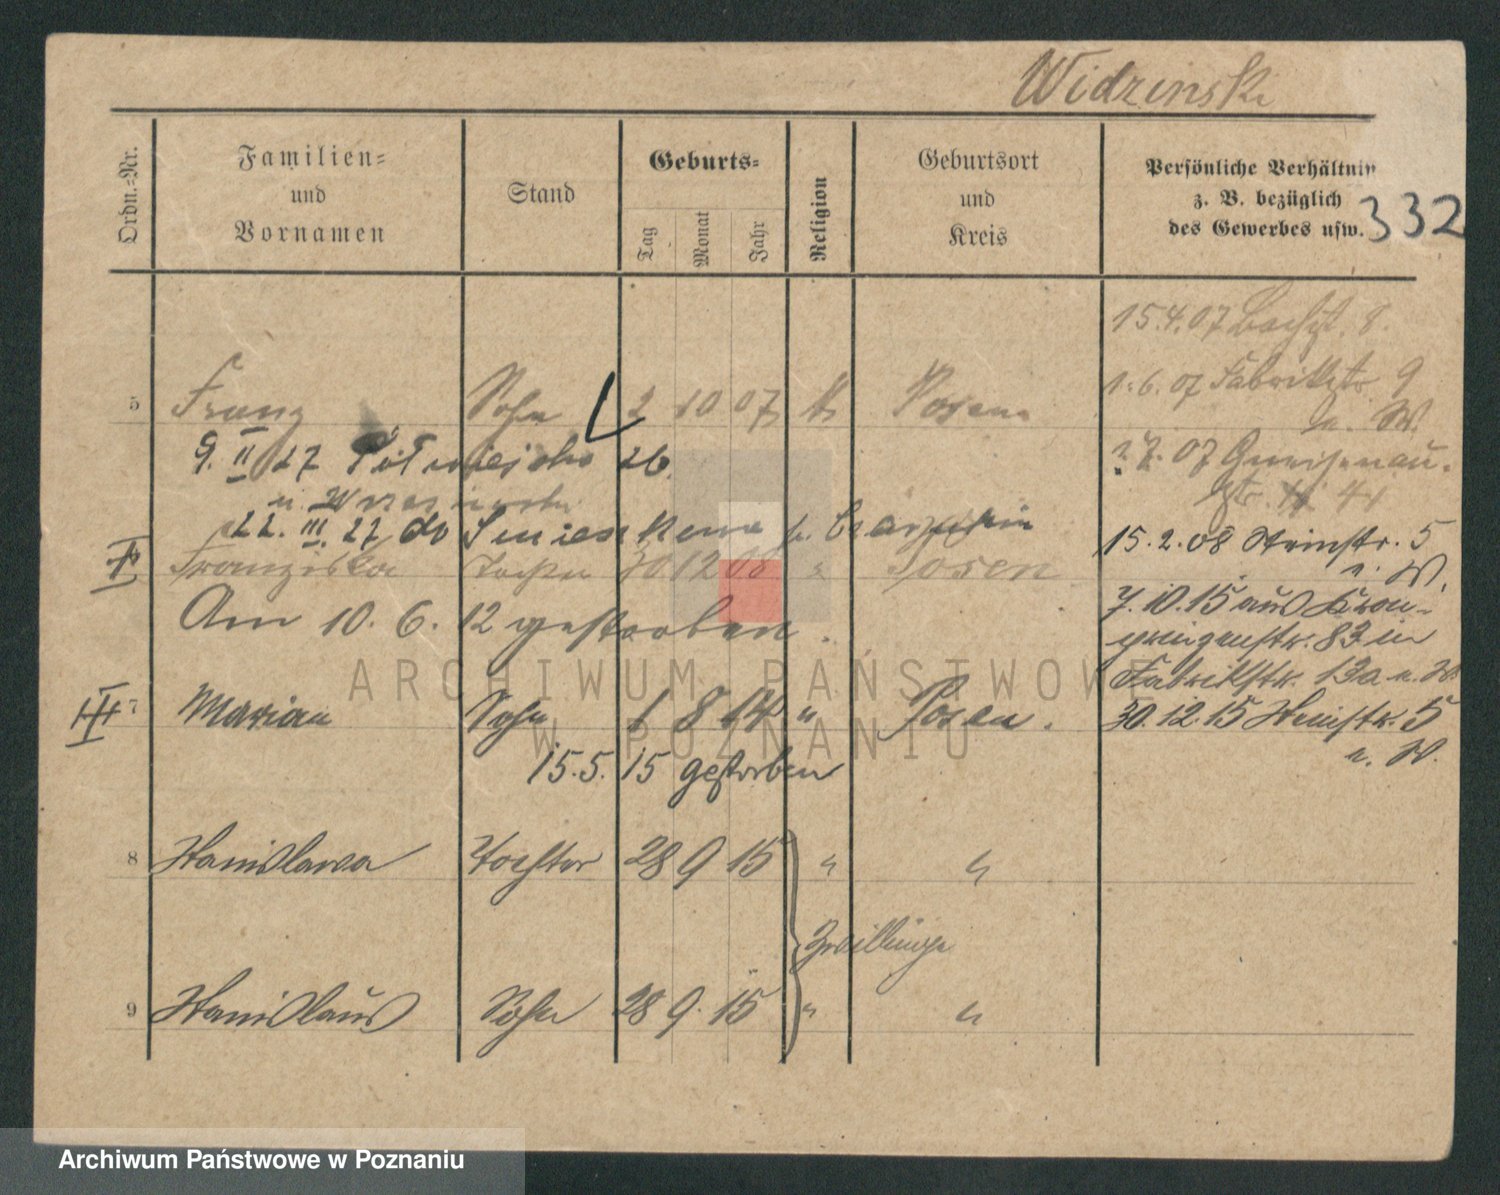 Widzinski
Ordn.-Nr.
Familien-
und
Vornamen
Stand
Geburts-
Tag
Monat
Jahr
Religion
Geburtsort
und
Kreis
Persönliche Verhältnin
z. B. bezüglich
des Gewerbes usw.
332
15.4.07 Bachstr. 8.
1.6.07 Fabrikstr. 9
u. W.
5 Franz Sohn 2 10 07 k Posen
2.7.07 Gneisenau-
str. 44
9. II 27 26
22. III. 27 do
15.2.08 Steinstr. 5
u. W.
Franziska Tochter 30 12 08 " Posen
Am 10. 6. 12 gestorben.
7.10.15 aus Kron-
prinzenstr. 83 in
Fabrikstr. 13a u. W.
7 Marian Sohn 1 8 14 " Posen.
30.12.15 Steinstr. 5
u. W.
15.5.15 gestorben
8 Stanislawa Tochter 28 9 15 " "
Zwillinge
9 Stanislaus Sohn 28 9. 15 " "
ARCHIWUM PAŃSTWOWE
W POZNANIU
Archiwum Państwowe w Poznaniu